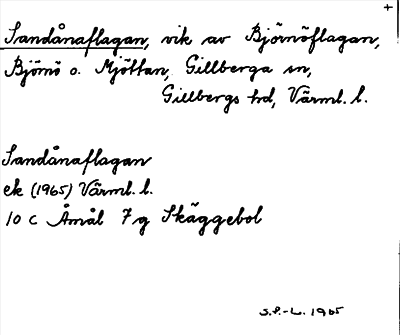 +
Sandånaflagan, vik av Björnöflagan,
Björnö o. Mjöttan, Gillberga sn,
Gillbergs hd, Värml. l.
Sandånaflagan
ek (1965) Värml. l.
10 c Åmål 7 g Skäggebol
S.P.-L. 1965